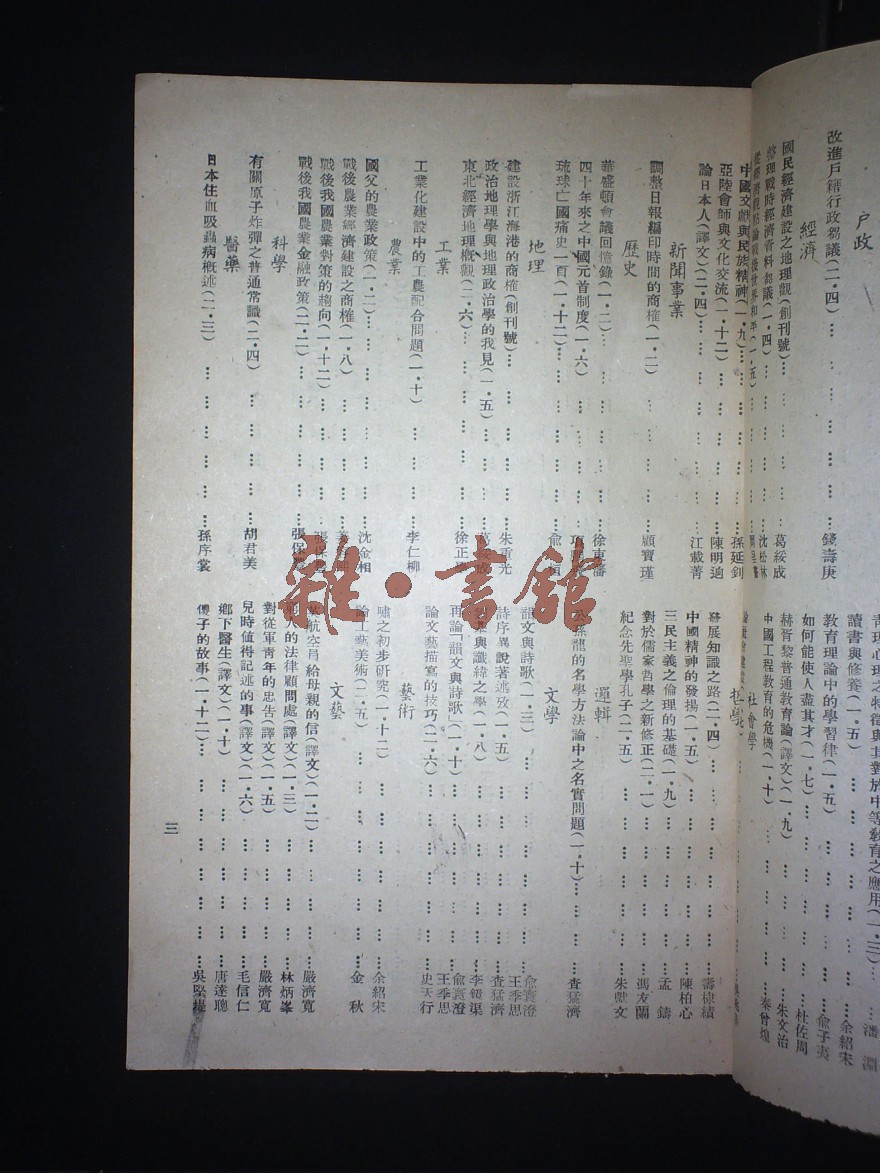 戶政
改進戶籍行政芻議(二・四)… … … … … …錢壽庚
經濟
國民經濟建設之地理觀(創刊號)… … … … … …葛綏成
整理戰時經濟資料芻議(一・四)… … … … … …沈松林
中國文獻與民族精神(一・九)… … … … … …孫延釗
亞陸會師與文化交流(一・十二)… … … … … …陳明逈
論日本人(譯文)(二・四)… … … … … …江載菁
新聞事業
調整日報編印時間的商榷(一・二)… … … … … …顧寶瑾
歷史
華盛頓會議回憶錄(一・二)… … … … … …徐東藩
四十年來之中國元首制度(一・六)
琉球亡國痛史一頁(一・十二)… … … … … …
地理
建設浙江海港的商榷(創刊號)… … … … … …朱重光
政治地理學與地理政治學的我見(一・五)… … … …
東北經濟地理概觀(二・六)… … … … … …徐正
工業
工業化建設中的工農配合問題(一・十)… … … … …李仁柳
農業
國父的農業政策(一・二)… … … … … …沈金相
戰後農業經濟建設之商榷(一・八)
戰後我國農業對策的趨向(一・十二)
戰後我國農業金融政策(二・二)… … … … …張保
科學
有關原子炸彈之普通常識(二・四)… … … … …胡君美
醫藥
日本住血吸蟲病概述(二・三)… … … … … …孫序裳
青
心理之特徵與其對於中等教育之應用(一・三)…潘淵
讀書與修養(一・五)… … … … … …余紹宋
教育理論中的學習律(一・五)… … … … …俞子夷
如何能使人盡其才(一・七)… … … … …杜佐周
赫胥黎普通教育論(譯文)(一・九)… … … …朱文治
中國工程教育的危機(一・十)… … … … …秦曾煌
社會學
哲學
發展知識之路(二・四)… … … … …壽棣績
中國精神的發揚(一・五)… … … … …陳柏心
三民主義之倫理的基礎(一・九)… … … … …孟鑄
對於儒家哲學之新修正(二・一)… … … … …馮友蘭
紀念先聖學孔子(二・五)… … … … …朱獻文
邏輯
公孫龍的名學方法論中之名實問題(一・十)… … …查猛濟
文學
韻文與詩歌(一・三)… … … … …俞寰澄
王季思
詩序異說著述攷(一・五)… … … … …查猛濟
與讖緯之學(一・八)… … … … …
再論「韻文與詩歌」(一・十)… … … … …俞寰澄
王季思
論文藝描寫的技巧(二・六)… … … … …史天行
藝術
嘯之初步研究(一・十二)… … … … …余紹宋
論工藝美術(二・五)… … … … …金秋
文藝
航空局給母親的信(譯文)(一・二)… … …嚴濟寬
人的法律顧問處(譯文)(一・三)… … …林炳峯
對從軍青年的忠告(譯文)(一・五)… … … …嚴濟寬
兒時值得記述的事(譯文)(一・六)… … … …毛信仁
鄉下醫生(譯文)(一・十)… … … … …唐達聰
傅子的故事(一・十二)… … … … …吳堅
三
雜・書館